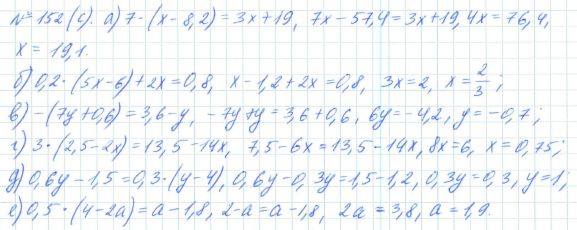 № 152 (с). а) 7·(x-8,2)=3x+19, 7x-57,4=3x+19, 4x=76,4,
x = 19,1.
б) 0,2·(5x-6)+2x=0,8, x-1,2+2x=0,8, 3x=2, x=2/3;
в) -(7y+0,6)=3,6-y, -7y+y=3,6+0,6, 6y=-4,2, y=-0,7;
г) 3·(2,5-2x)=13,5-14x, 7,5-6x=13,5-14x, 8x=6, x=0,75;
д) 0,6y-1,5=0,3·(y-4), 0,6y-0,3y=1,5-1,2, 0,3y=0,3, y=1;
е) 0,5·(4-2a)=a-1,8, 2-a=a-1,8, 2a=3,8, a=1,9.